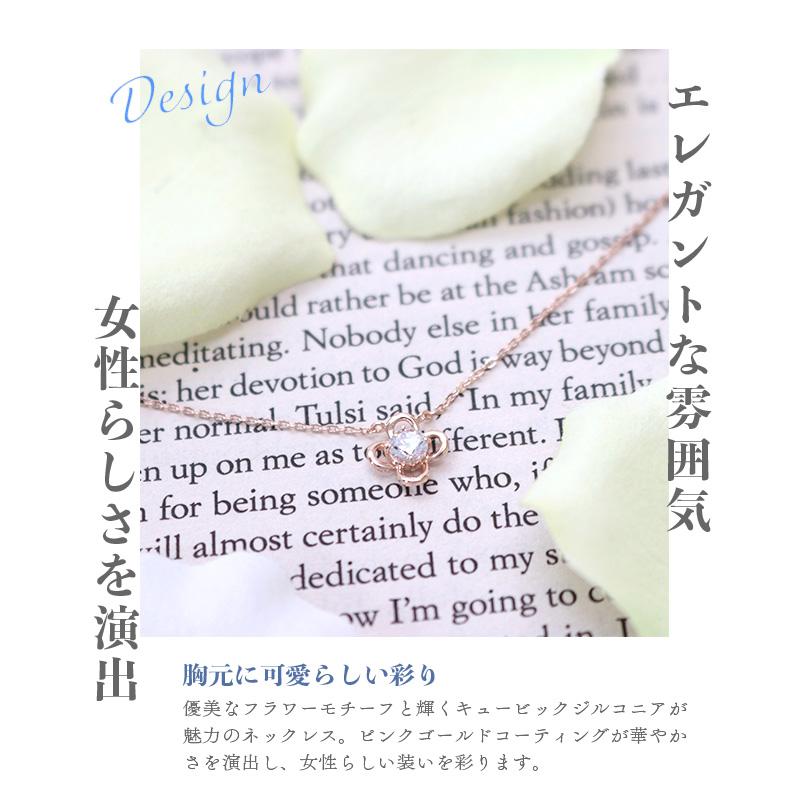 Design
エレガントな雰囲気
女性らしさを演出
ding last
fashion) ho
ry
that dancing and gossip.
ould rather be at the Ashram sc
meditating. Nobody else in her family
is: her devotion to God is way beyond
er normal. Tulsi said. "In my family
en up on me as to fferent. I
n for being someone who, if
will almost certainly do the
dedicated to my s
ow I'm going to c
d in, I
胸元に可愛らしい彩り
優美なフラワーモチーフと輝くキュービックジルコニアが
魅力のネックレス。ピンクゴールドコーティングが華やか
さを演出し、女性らしい装いを彩ります。